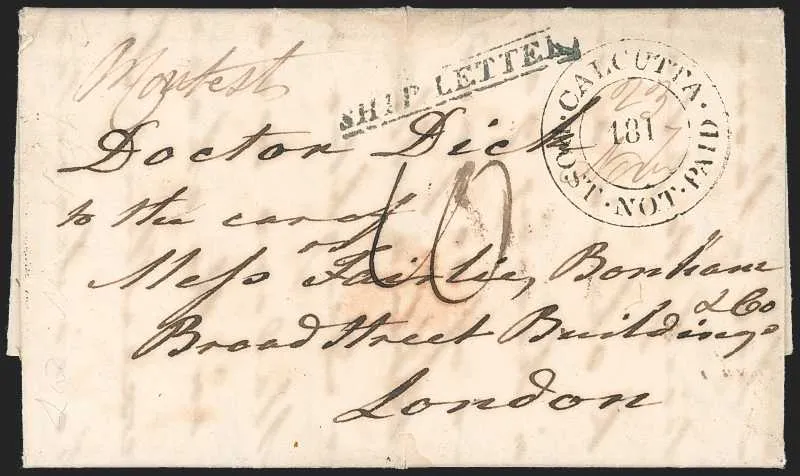 SHIP LETTER
CALCUTTA · POST · NOT · PAID
23
181
Nov
Doctor Dick
to the care of
Mess Fairlie, Bonham
& Co
Broad Street Buildings
London
10